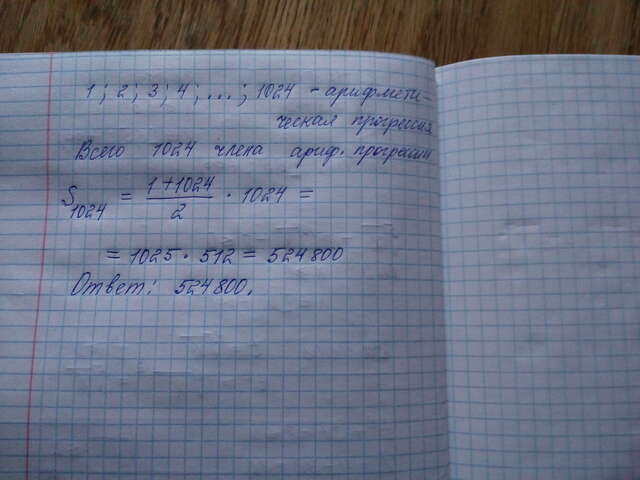 1 ; 2 ; 3 ; 4 ; ... ; 1024 - арифмети-
ческая прогрессия
Всего 1024 члена ариф. прогрессии
S₁₀₂₄ = (1+1024)/2 · 1024 =
= 1025 · 512 = 524800
Ответ: 524800.